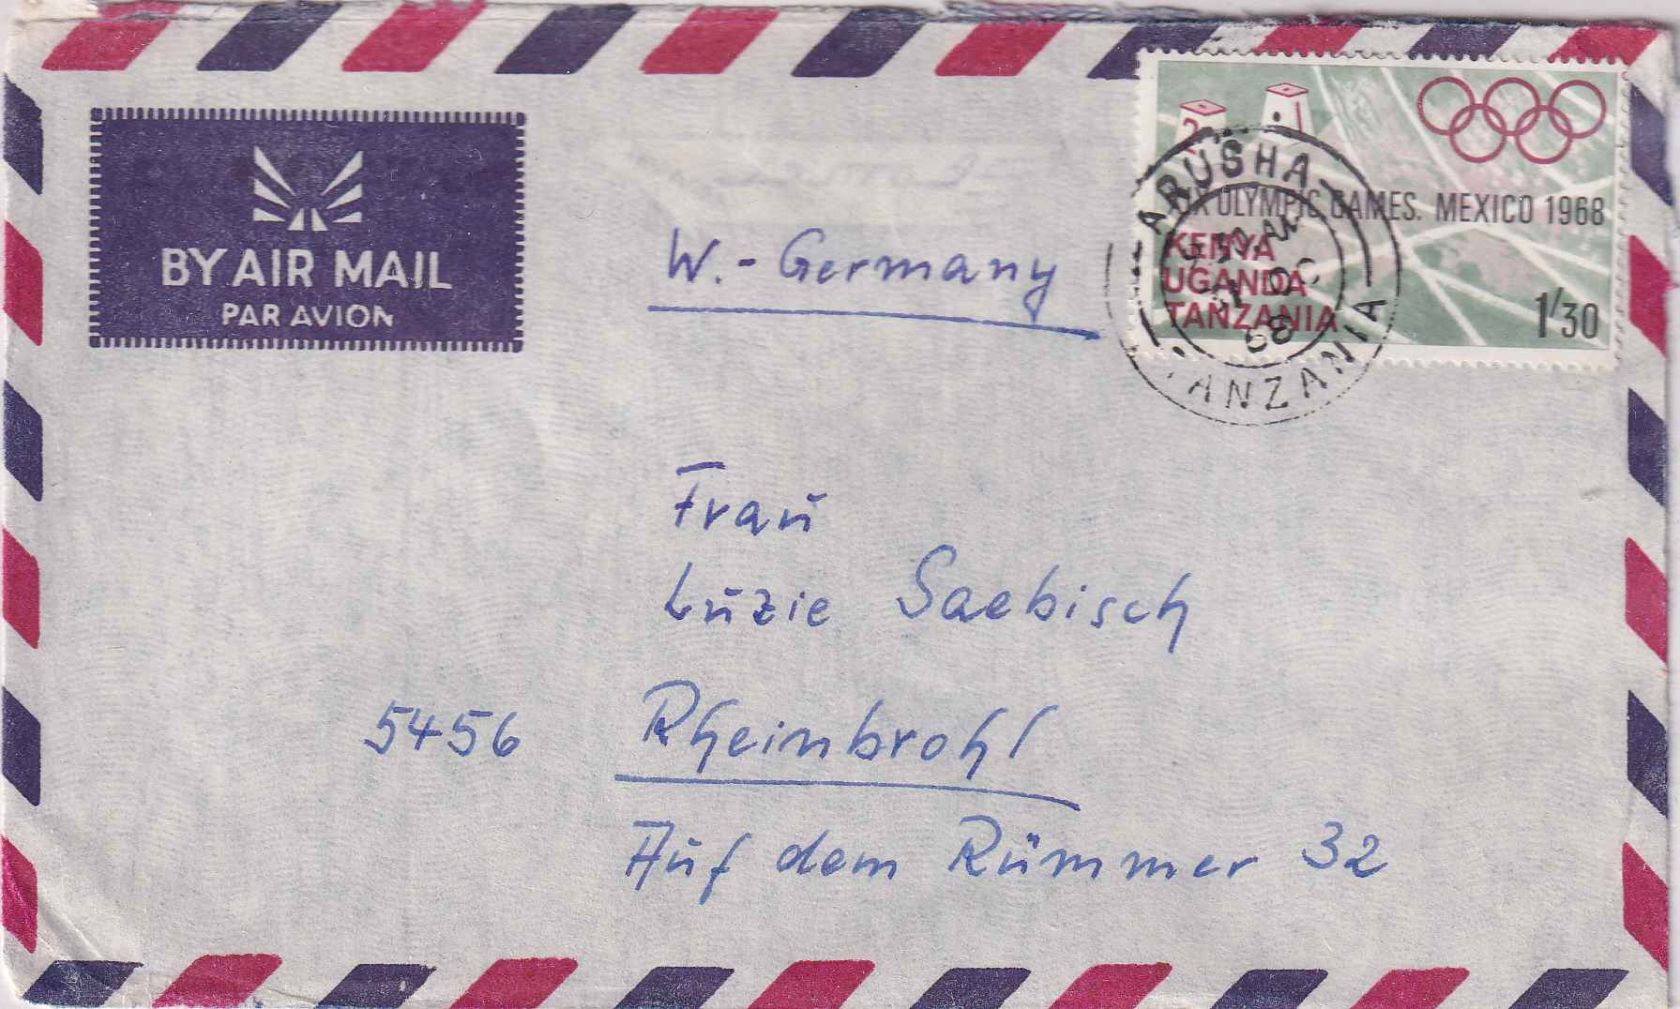 BY AIR MAIL
PAR AVION
2 1
XIX OLYMPIC GAMES. MEXICO 1968
KENYA
UGANDA
TANZANIA
1/30
ARUSHA
68
TANZANIA
W.-Germany
Frau
Luzie Saebisch
5456 Rheinbrohl
Auf dem Rümmer 32